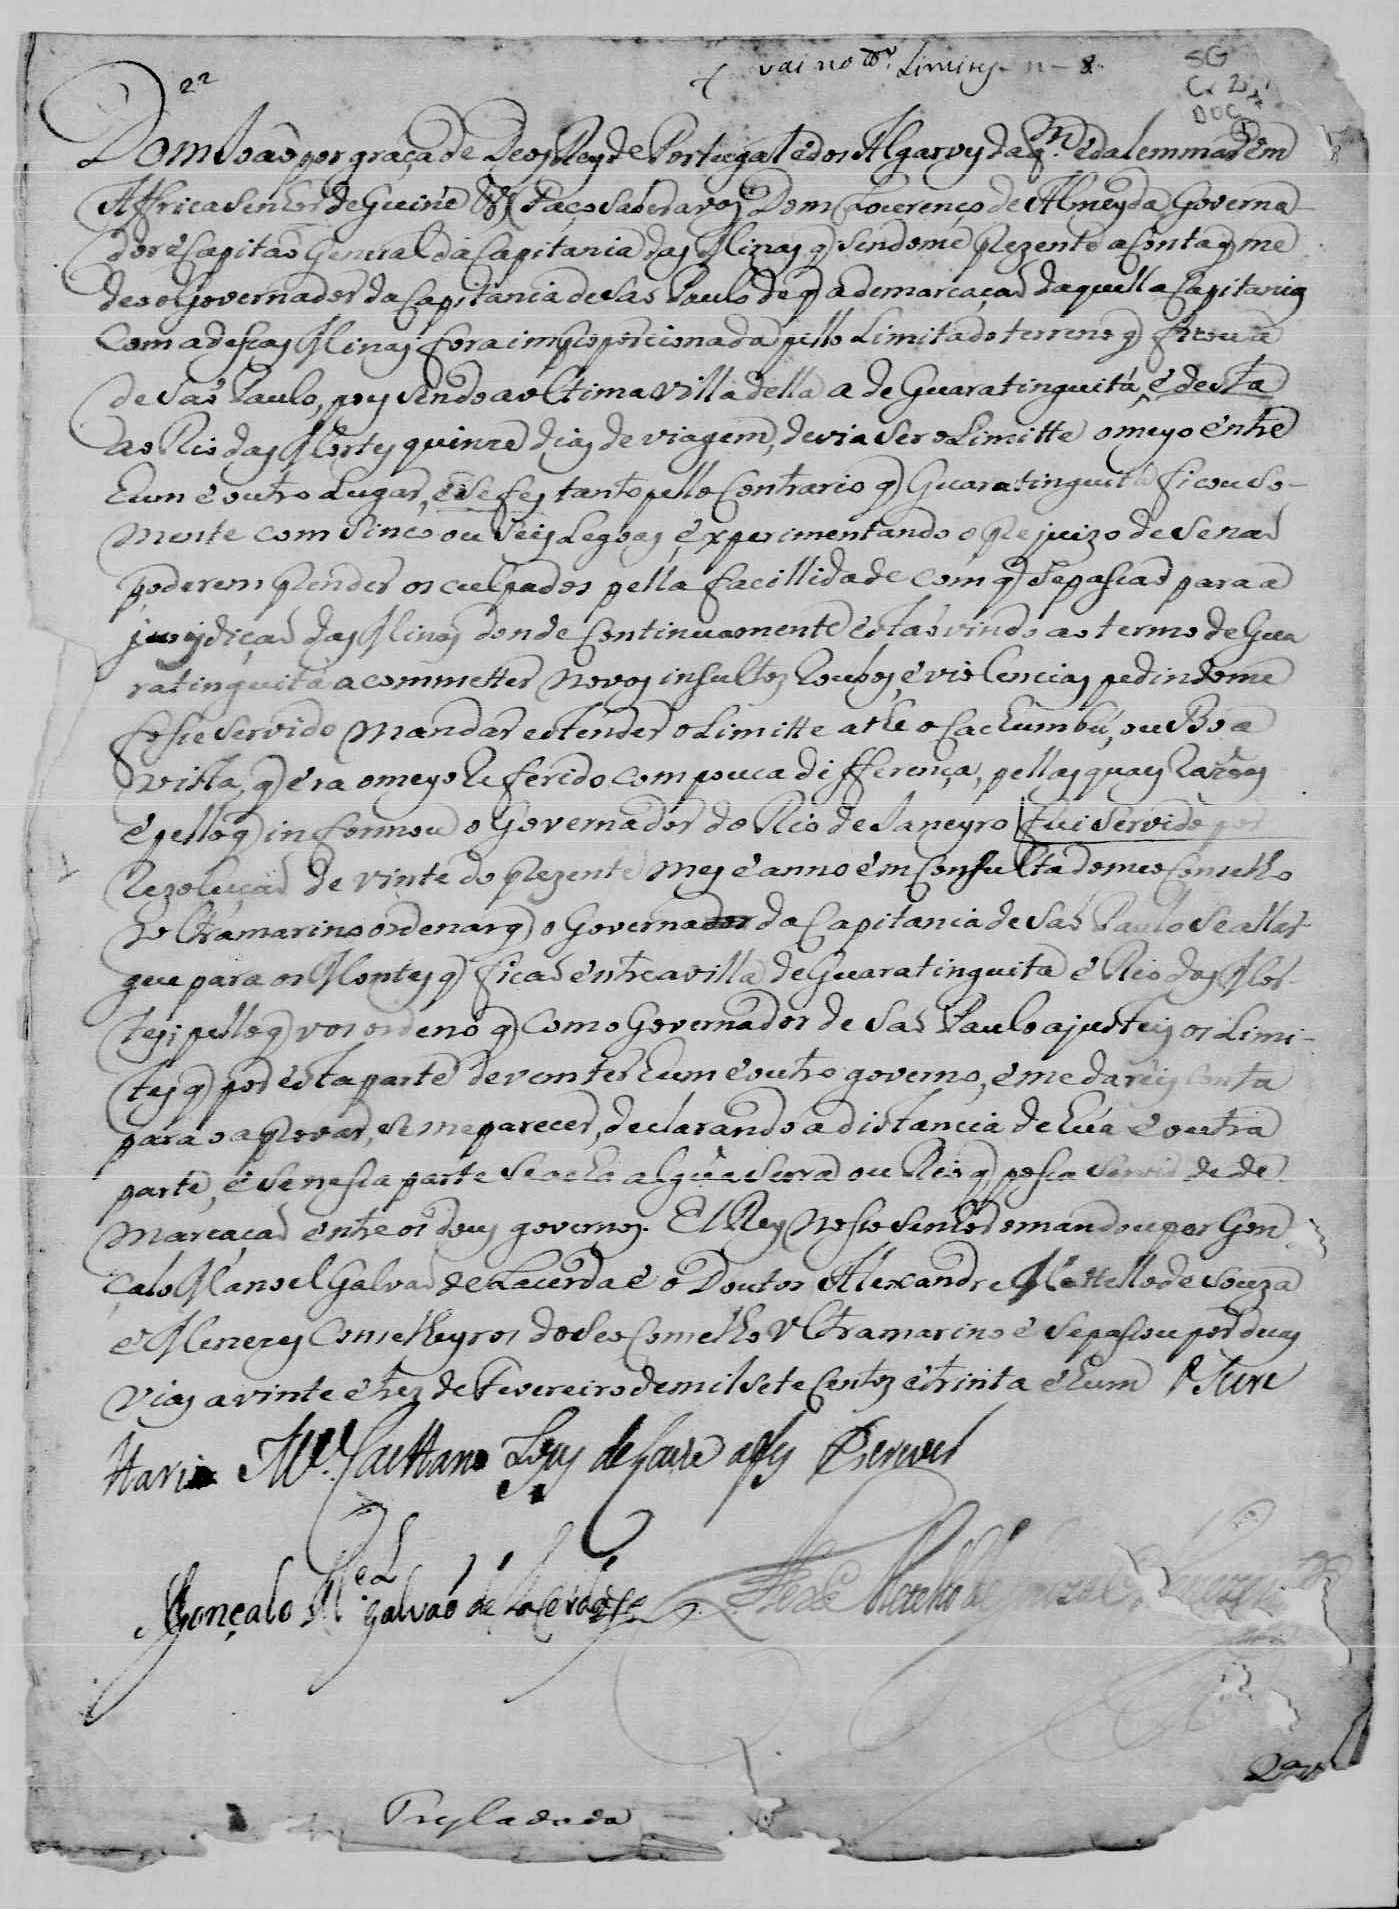 vai no Limites n 8
SG
Cx 2
DOC
2ª
Dom Joaõ por graça de Deos Rey de Portugal é dos Algarves daqm. é dalem mar ém
Affrica Senhor de Guiné &ª Faço saber a vos Dom Lourenço de Almeyda Governa-
dor é Capitaõ General da Capitania das Minas q̃ sendome prezente a conta q̃ me
deo o Governador da Capitania de Saõ Paulo de q̃ a demarcaçaõ daquella Capitania
com a dessas Minas fora impropocionada pello Limitado terreno q̃ ficou a
de Saõ Paulo, poys sendo a ultima villa della a de Guaratinguitá, é desta
ao Rio das Mortes quinze dias de viagem, devia ser o Limitte o meyo éntre
hum é outro Lugar, é se fes tanto pello contrario q̃ Guaratinguitá ficou so-
mente com sinco ou seis Legoas, éxperimentando o prejuizo de se naõ
poderem prender os culpados pella facillidade com q̃ se passaõ para a
jurisdiçaõ das Minas donde continuamente éstaõ vindo ao termo de Gua
ratinguitá a commetter novos insultos roubos, é violencias pedindome
fosse servido mandar éstender o Limitte athe o Cachumbú, ou Boa
vista, q̃ éra o meyo referido com pouca differença, pellas quaes razoẽs
é pello q̃ informou o Governador do Rio de Janeyro fui servido por
rezoluçaõ de vinte do prezente mes é anno ém consulta do meo Conselho
Ultramarino ordenar q̃ o Governador da Capitania de Saõ Paulo se allar-
gue para os Montes q̃ ficaõ éntre a villa de Guaratinguitá é Rio das Mor-
tes; pello q̃ vos ordeno q̃ com o Governador de Saõ Paulo ajusteis os Limi-
tes q̃ por ésta parte deve conter hum é outro governo, é me dareis conta
para o approvar, se me parecer, declarando a distancia de hũa é outra
parte, é se nessa parte se acha algũa serra ou Rio q̃ possa servir de de
marcaçaõ éntre os dous governos. El Rey nosso Senhor o mandou por Gon
çalo Manoel Galvaõ de Lacerda é o Doutor Alexandre Mettello de Souza
é Menezes Conselheyros do seo Conselho Ultramarino é se passou por duas
vias a vinte é tres de Fevereiro de mil sete centos é trinta é hum O Secre
tario M.el Caettano Lopes de Lavre a fes Escrever
Gonçalo M.el Galvaõ de Lacerda
Alex.e Metello de Souza e Menezes
Tresladada